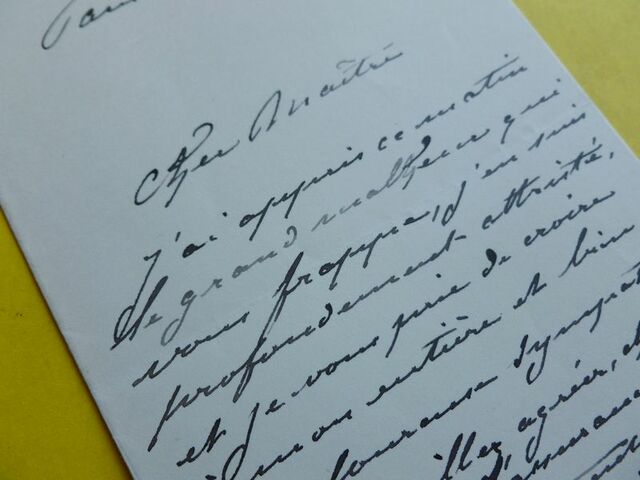 Cher Maître
J'ai appris ce matin
le grand malheur qui
vous frappe, j'en suis
profondement attristé,
et je vous prie de croire
à mon entière et bien
douloureuse sympat
illez agréer,